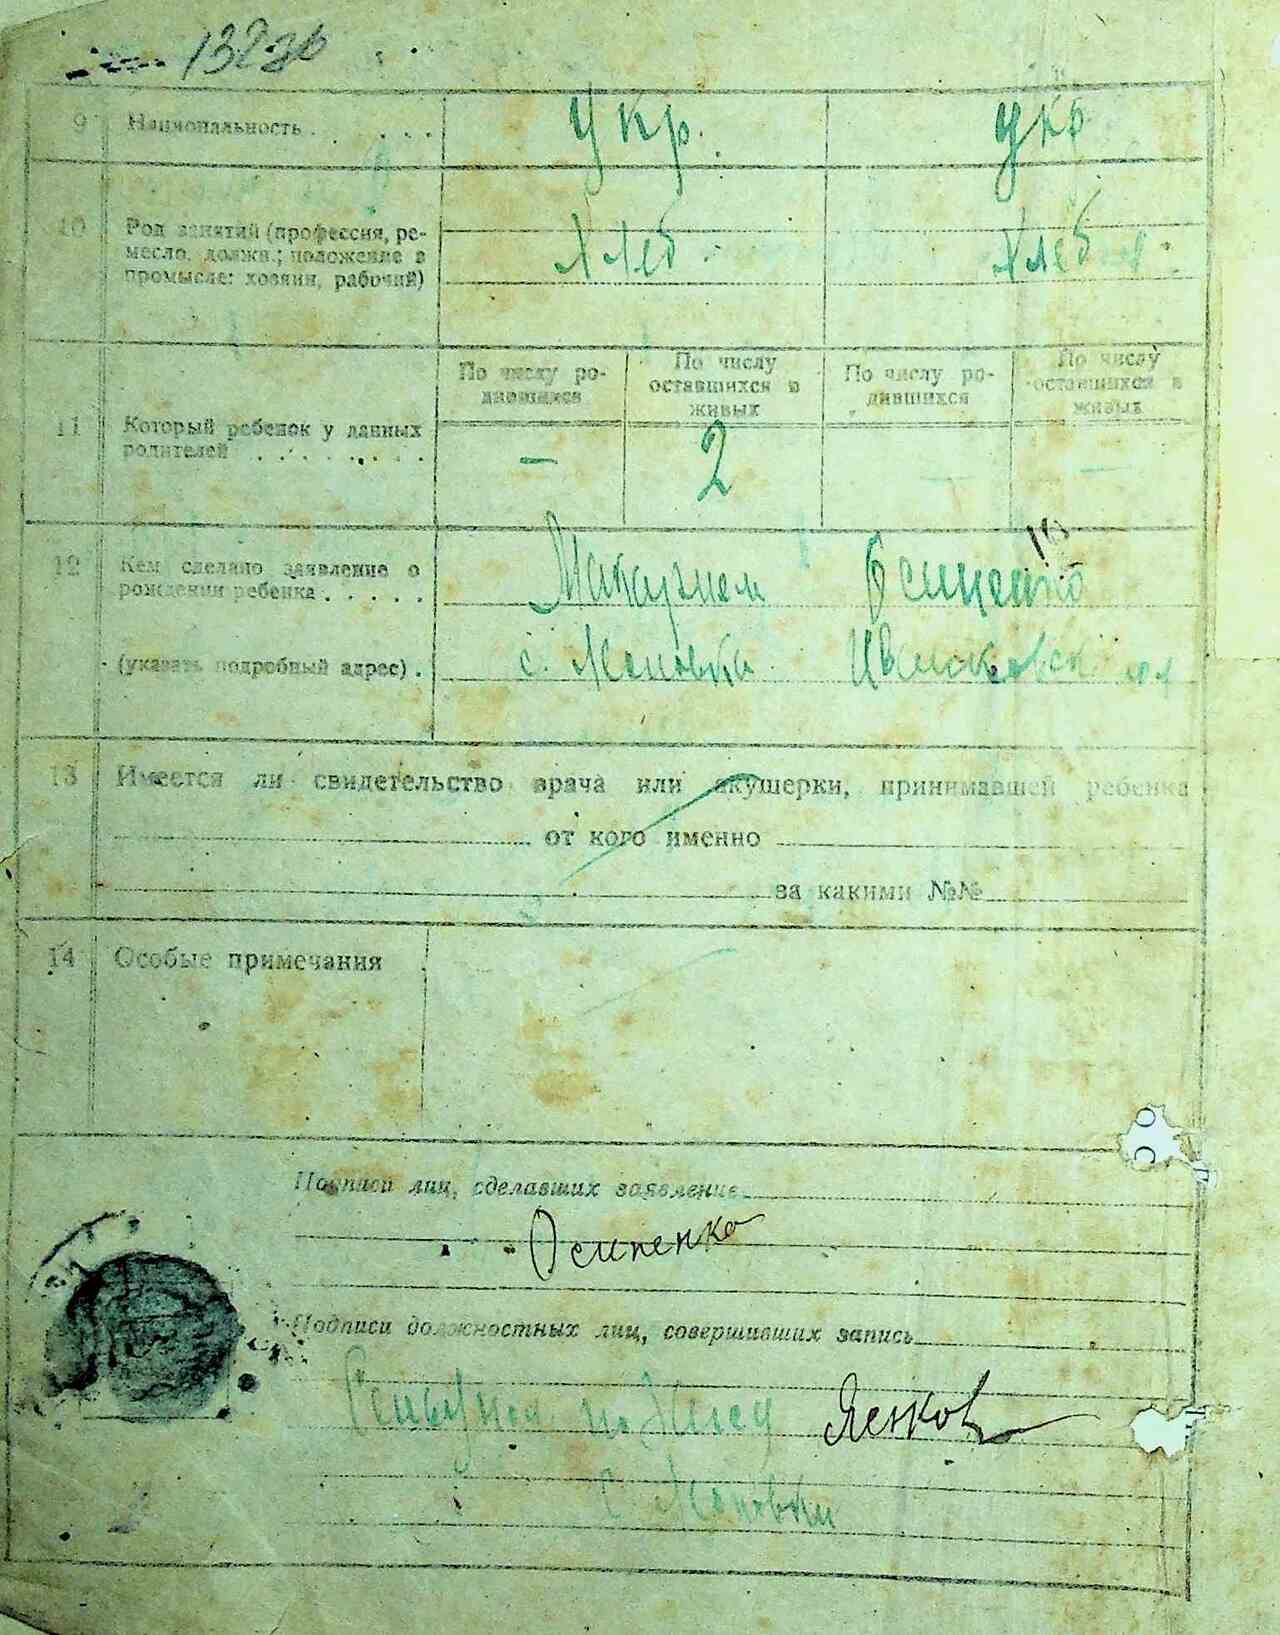 132 зв
9 Национальность . . . . укр. укр
10 Род занятий (профессия, ре-
месло, должн.; положение в
промысле: хозяин, рабочий)
Хлеб. Хлеб
По числу ро-
дившихся
По числу
оставшихся в
живых
По числу ро-
дившихся
По числу
оставшихся в
живых
11 Который ребенок у данных
родителей . . . . . . . .
— 2 — —
12 Кем сделано заявление о
рождении ребенка . . . . .
Осипенко
(указать подробный адрес) .
с.
13 Имеется ли свидетельство врача или акушерки, принимавшей ребенка
от кого именно
за какими №№
14 Особые примечания
Подписи лиц, сделавших заявление
Осипенко
Подписи должностных лиц, совершивших запись
с.